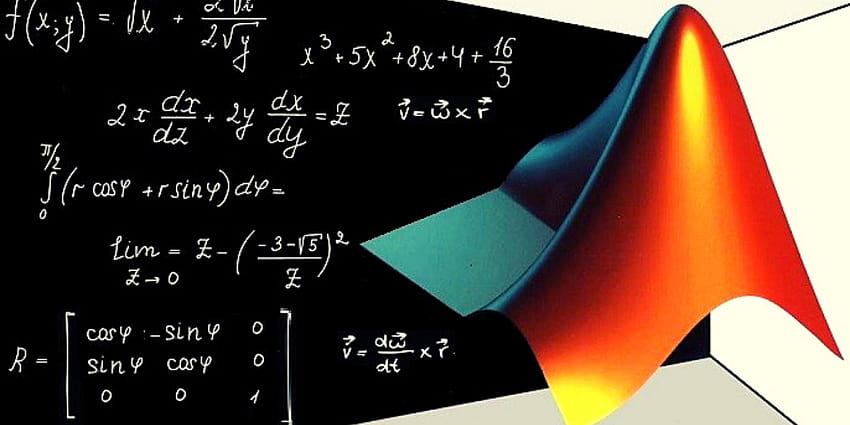 f(x;y) = √x + 2√x / 2√y
x³ + 5x² + 8x + 4 + 16/3
2x dx/dz + 2y dx/dy = z
v⃗ = ω⃗ × r⃗
∫₀^π/2 (r cosφ + r sinφ) dφ =
lim z→0 = z - (-3-√5 / z)²
R = [cosφ -sinφ 0
sinφ cosφ 0
0 0 1]
v⃗ = dω⃗/dt × r⃗